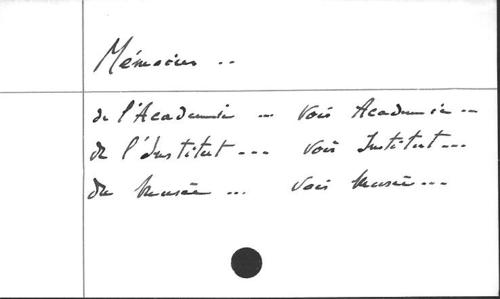 Mémoires ..
de l'Académie ... voir Académie ...
de l'Institut ... voir Institut ...
du Musée ... voir Musée ...